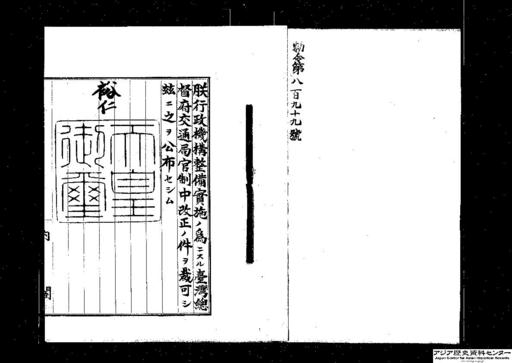 勅令第八百九十九號
朕行政機構整備實施ノ爲ニスル臺灣總
督府交通局官制中改正ノ件ヲ裁可シ
玆ニ之ヲ公布セシム
裕仁
天皇
御璽
内閣
アジア歴史資料センター
Japan Center for Asian Historical Records